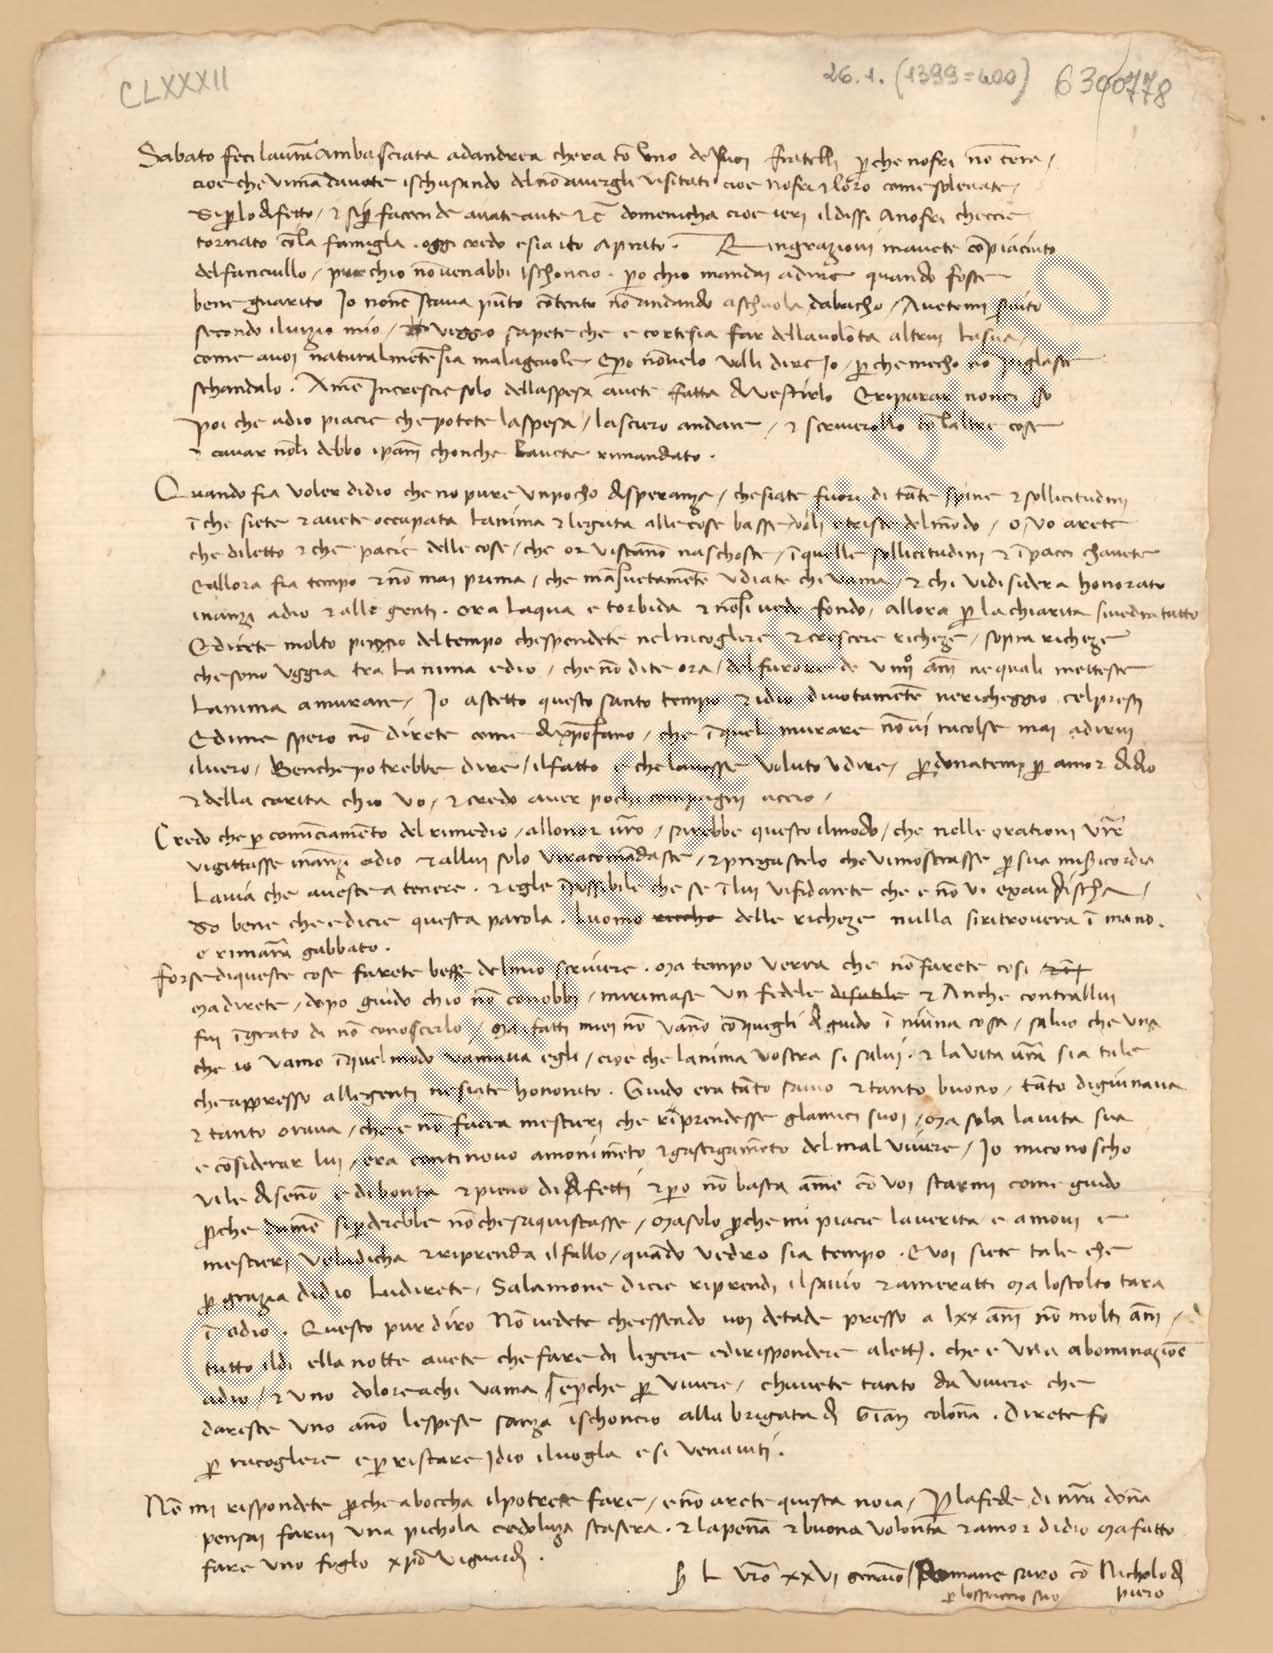 CLXXXII
26.1. (1399=400) 6300778
Sabato feci la vostra ambasciata ad andrea chera con uno de suoi fratelli perche nofri non cera /
cioe che vima davate ischusando del non avergli visitati cioe nofri e loro come solevate /
tornato con la famiglia . oggi credo e sia ito a prato . E ringrazioni mavete conpiaciuto
del fanciullo / perchio non venabbi ischoncio . pero chio mandai quando foste
bene guarito Io none stava punto contento non andando aschuola dabacho / Avetemi servito
secondo il vizio mio / veggio sapete che e cortesia far della volonta altrui la sua /
come avoi naturalmente sia malagevole Epero novelo volli dire Io / perche mecho no pigliaste
schandalo . A me Increscie solo della spesa avete fatta di vestirlo E riparar nonci so
Poi che adio piacie che potete la spesa / lasciero andare / e scriverollo con laltre cose
cavar noli debbo i panni chonche lavete rimandato .
Quando fia voler didio che no pure un pocho di speranza / che siate fuori di tante spine e sollicitudini
in che siete e avete occupata lanima e legata alle cose basse vili e triste del mondo / o vo arete
che diletto e che pacie delle cose / che or vi stanno naschoste / in quelle sollicitudini e inpacci chavete
E allora fia tempo e non mai prima / che mansuetamente udiate chi vama / e chi vi disidera honorato
inanzi adio e alle genti . ora laqua e torbida e non si vede fondo / allora per la chiarita si vedra tutto
E direte molto peggio del tempo che spendete nel racogliere e crescere richeze / sopra richeze
che sono uggia tra lanima e dio / che non dite ora / del furore de anni ne quali metteste
lanima a murare / Io aspetto questo santo tempo e idio divotamente
E di me spero non direte come / che in quel murare non vi racolse mai a dirvi
il vero / Benche potrebbe dire / il fatto e che lavesse voluto udire / perdonatemi per amor di dio
e della carita chio vo / e credo aver pochi compagni acero /
Credo che per cominciamento del rimedio / allonor vostro / sarebbe questo il modo / che nelle orationi vostre
vi gittasse inanzi adio e allui solo vi racomandaste / e pregastelo che vi mostrasse per sua misericordia
la via che aveste a tenere . e egle inpossibile che se in lui vi fidarete che e non vi exaudischa /
So bene che e dicie questa parola . luomo riccho delle richeze nulla si ritrovera in mano .
e rimarra gabbato .
Forse di queste cose farete beffe del mio scrivere . Ma tempo verra che non farete cosi
Ma direte / dopo guido chio non conobbi / mi rimase un fedele disutile e Anche contrallui
fui ingrato di non conoscerlo / Ma i fatti miei non vanno con quegli di guido in niuna cosa / salvo che una
che io vamo in quel modo vamava egli / cioe che lanima vostra si salvi . e la vita vostra sia tale
che appresso alle genti ne siate honorato . Guido era tanto savio e tanto buono / tanto digiunava
e tanto orava / che e non facea mestieri che riprendesse gliamici suoi / Ma sola la vita sua
e considerar lui / era continovo amonimento e gastigamento del mal vivere / Io mi conoscho
vile di senno e di bonta e pieno di difetti e pero non basta a me con voi starmi come guido
perche da me si perderebbe non che saquistasse / Ma solo perche mi piacie la verita e a me
mestieri vela dicha e riprenda il fallo / quando vedro sia tempo . E voi siete tale che
per grazia didio ludirete / Salamone dicie riprendi il savio e ameratti Ma lo stolto tara
in odio . Questo pur diro Non vedete che essendo voi detade presso a lxx anni non molti anni /
tutto il di e la notte avete che fare di legere e di rispondere a lettere . che e una abominazione
adio / e uno dolore a chi vama e perche per vivere / chavete tanto da vivere che
dareste uno anno le spese sanza ischoncio alla brigata di Gian colonna . Direte fo
per racogliere e per ristare Idio il voglia e si venaviti .
Non mi rispondete perche a boccha il potrete fare / e non arete questa noia / Per la fede di nostra donna
pensai farvi una pichola stasera . e la penna e buona volonta e amor didio ma fatto
fare uno foglio xpo vi guardi .
S L vostro xxvi gennaio / Domane saro con Nicholo di
piero
per lo spaccio suo